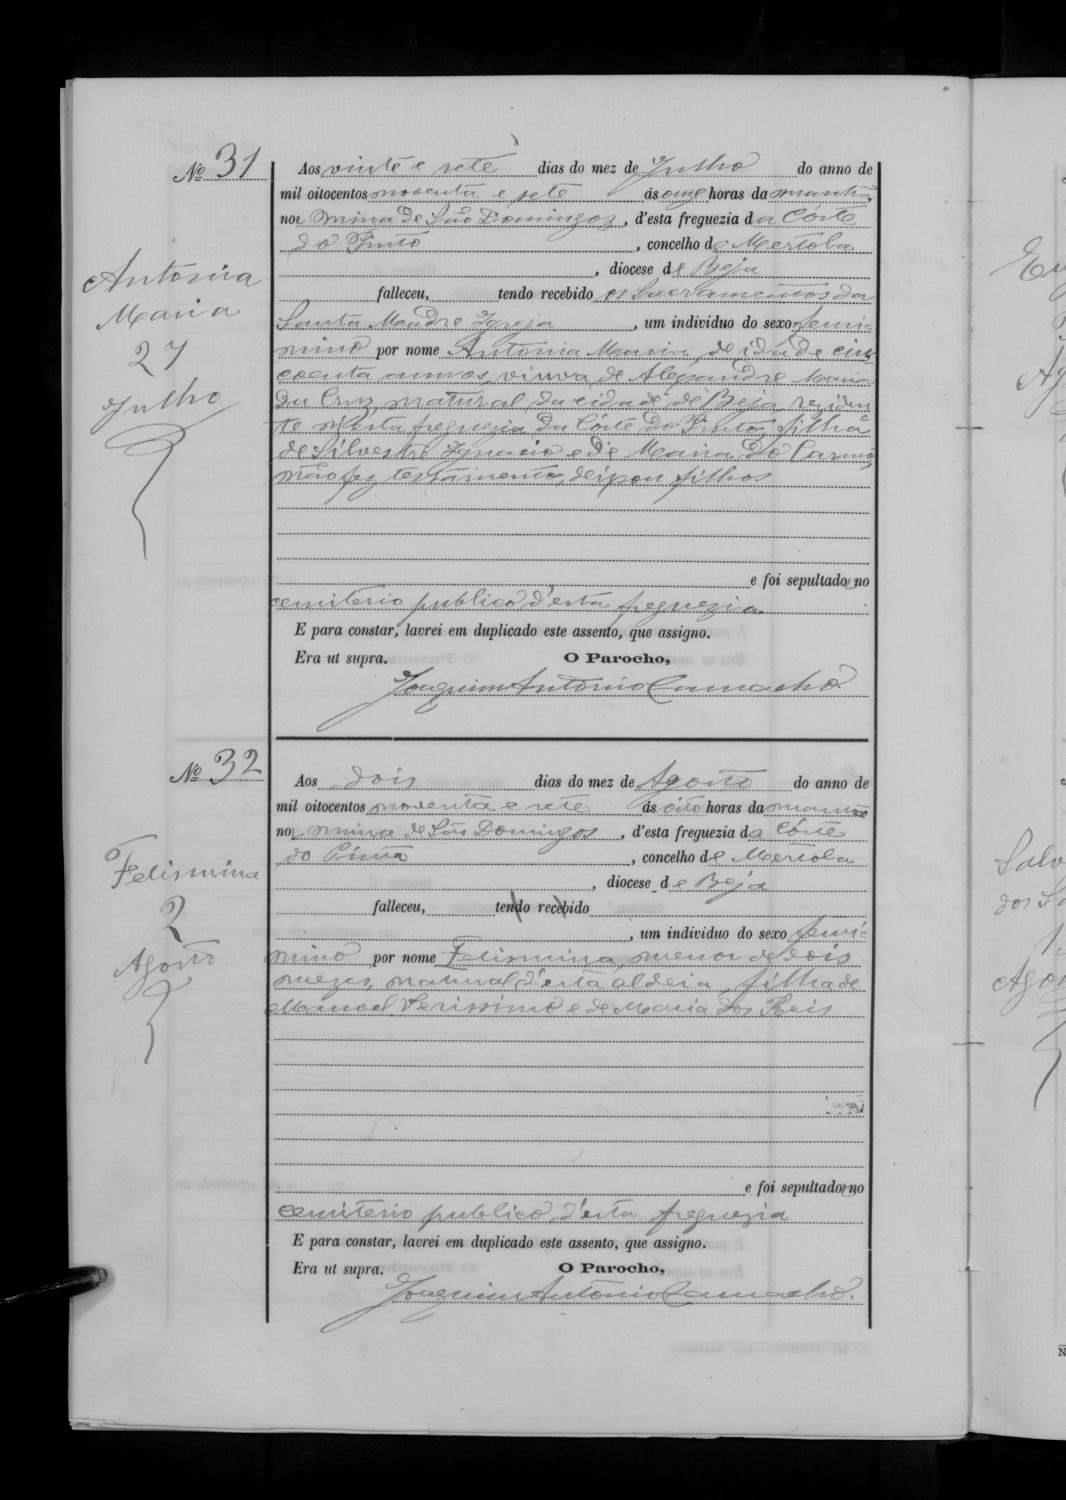 Nº 31
Antonia
Maria
27
Julho
Aos vinte e sete dias do mez de Julho do anno de
mil oitocentos noventa e sete ás onze horas da manhã,
na mina de São Domingos, d'esta freguezia da Côrte
do Pinto, concelho de Mertola
, diocese de Beja
falleceu, tendo recebido os Sacramentos da
Santa Madre Igreja, um individuo do sexo femi-
nino por nome Antonia Maria, de idade cin-
coenta annos, viuva de Alexandre Maria
da Cruz, natural da cidade de Beja, residen
te n'esta freguezia da Côrte do Pinto, filha
de Silvestre Ignacio e de Maria do Carmo,
não fez testamento, deixou filhos
e foi sepultado no
cemiterio publico d'esta freguezia.
E para constar, lavrei em duplicado este assento, que assigno.
Era ut supra. O Parocho,
Joaquim Antonio Camacho.
Nº 32
Felismina
2
Agosto
Aos dois dias do mez de Agosto do anno de
mil oitocentos noventa e sete ás oito horas da manhã
na mina de São Domingos, d'esta freguezia da Côrte
do Pinto, concelho de Mertola
, diocese de Beja
falleceu, tendo recebido
, um individuo do sexo femi-
nino por nome Felismina, menor de dois
mezes, natural d'esta aldeia, filha de
Manoel Verissimo e de Maria dos Reis
e foi sepultado no
cemiterio publico d'esta freguezia
E para constar, lavrei em duplicado este assento, que assigno.
Era ut supra. O Parocho,
Joaquim Antonio Camacho.
Salv
dos
Agos